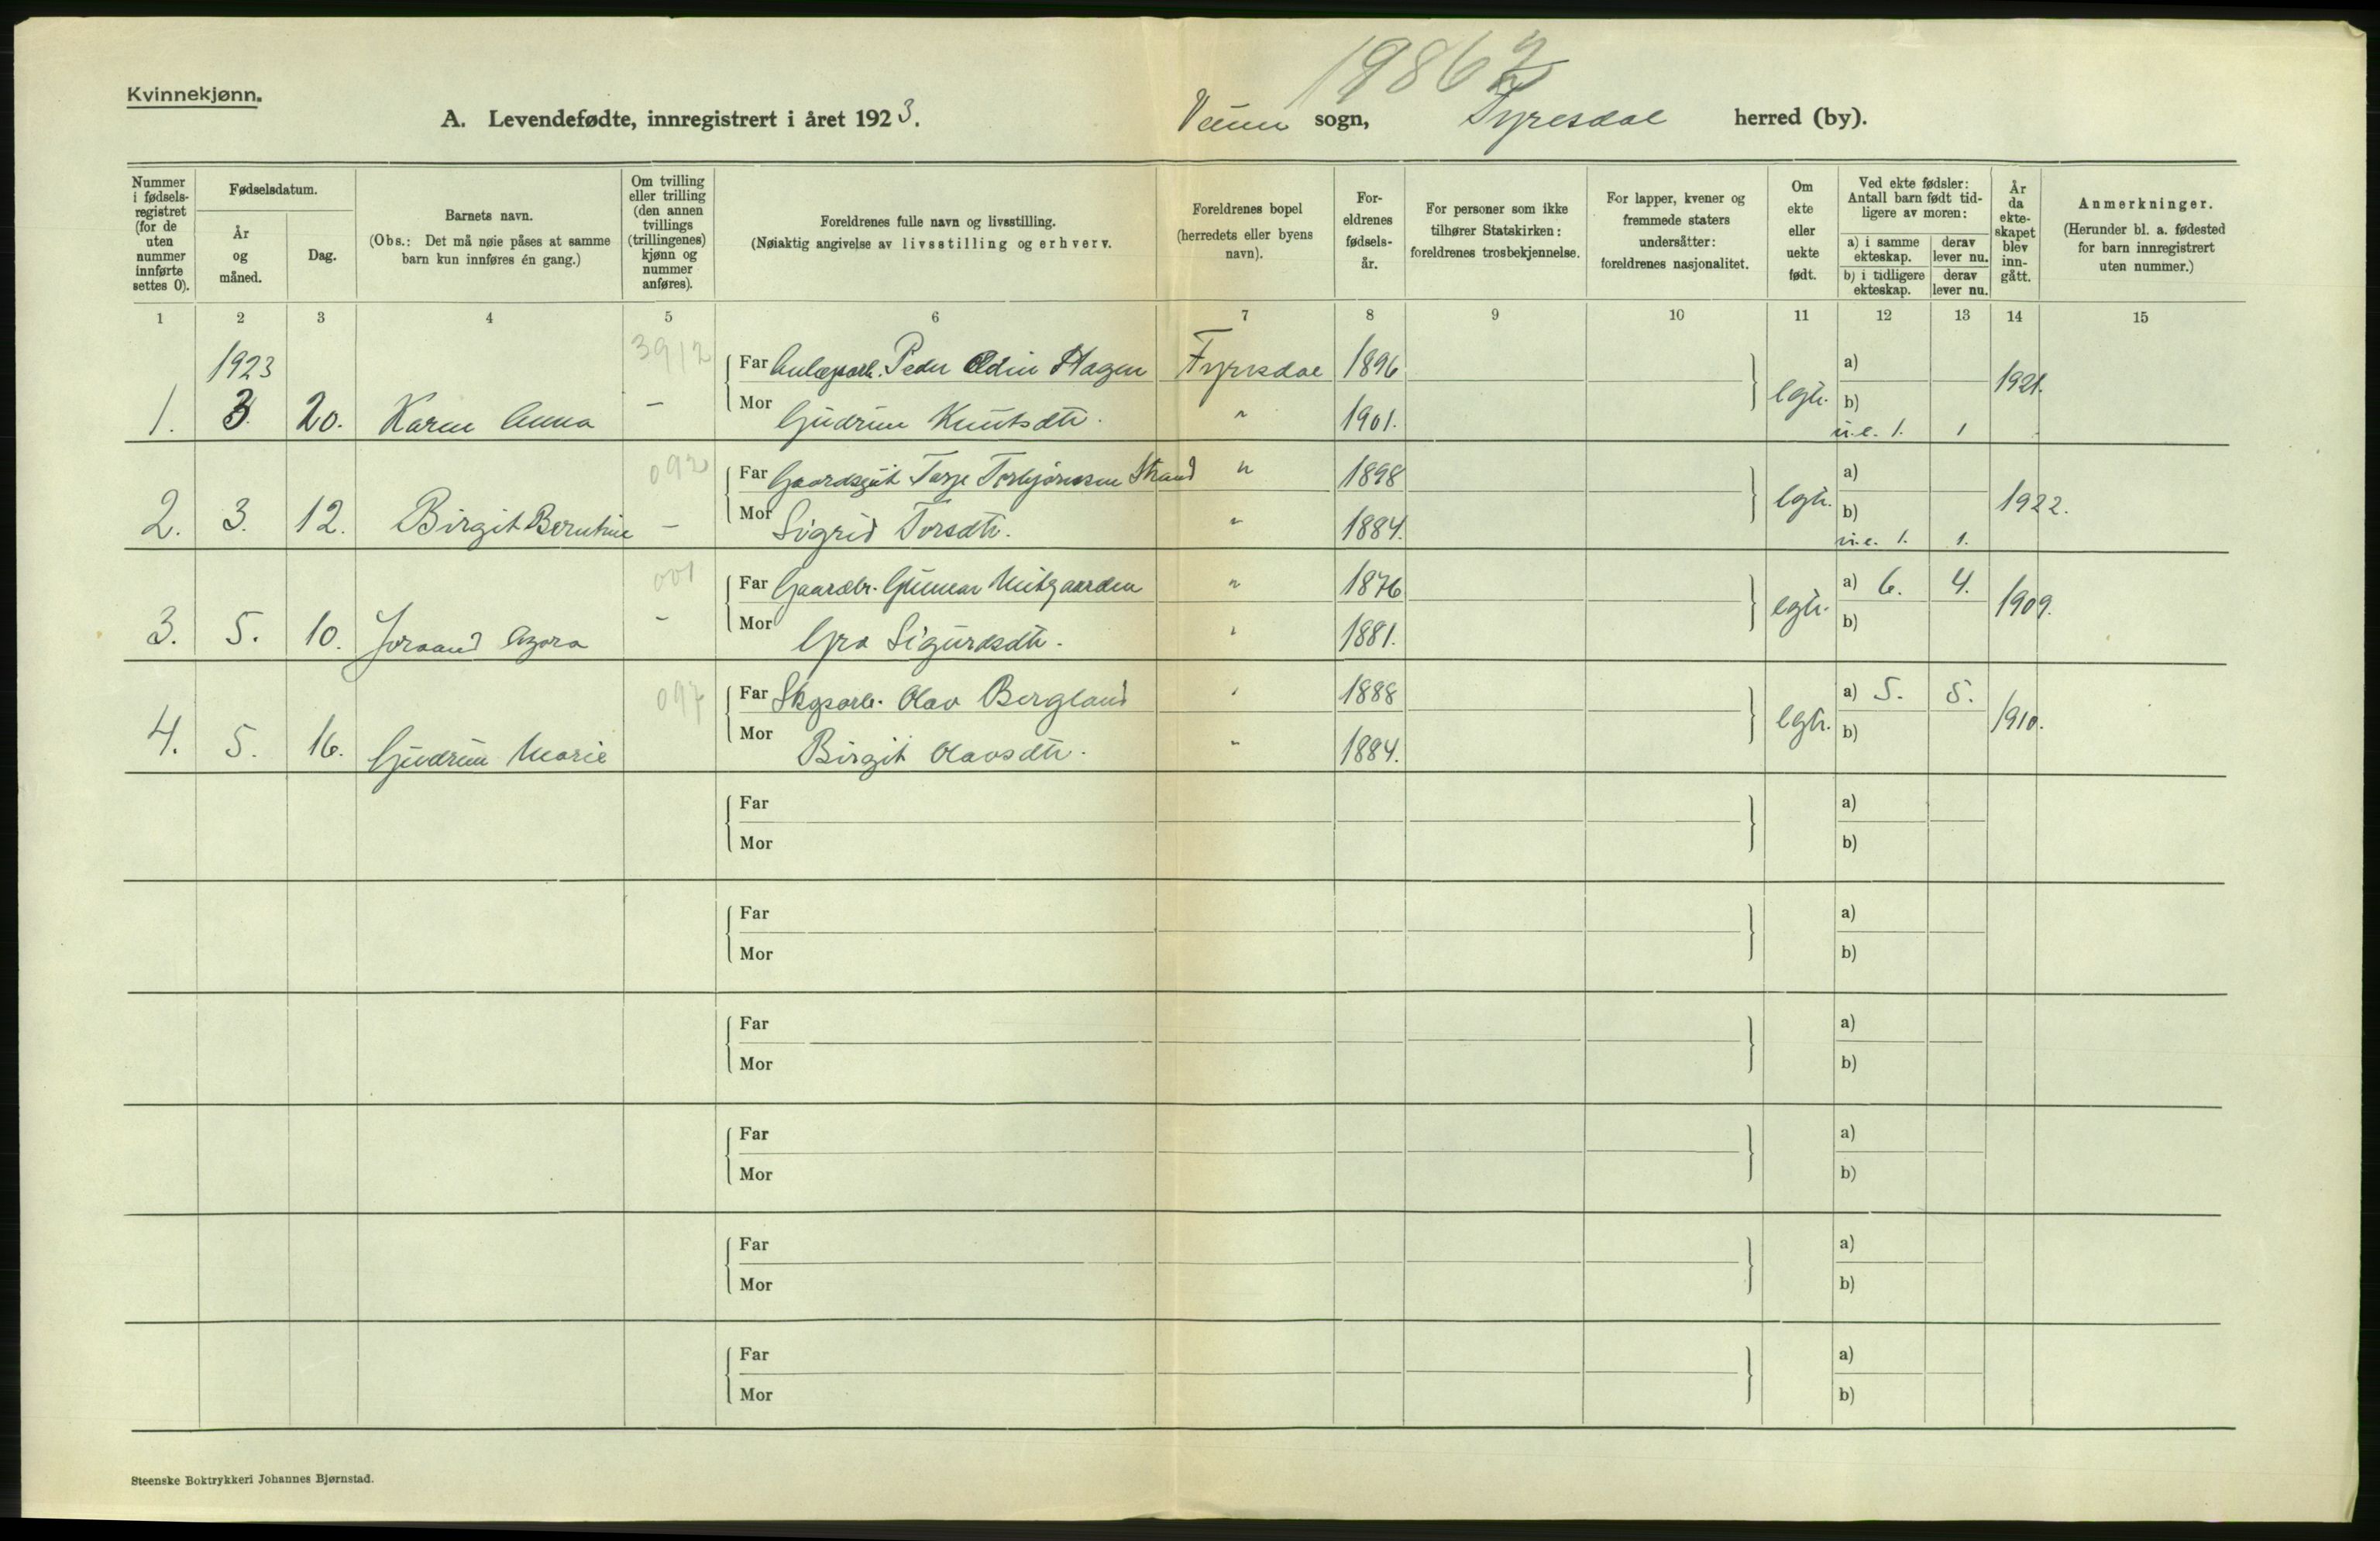 1986
Kvinnekjønn.
A. Levendefødte, innregistrert i året 1923. Veum sogn, Fyresdal herred (by).
Nummer i fødselsregistret (for de uten nummer innførte settes 0).
Fødselsdatum.
År og måned.
Dag.
Barnets navn.
(Obs.: Det må nøie påses at samme barn kun innføres én gang.)
Om tvilling eller trilling (den annen tvillings (trillingenes) kjønn og nummer anføres).
Foreldrenes fulle navn og livsstilling.
(Nøiaktig angivelse av livsstilling og erhverv.
Foreldrenes bopel (herredets eller byens navn).
Foreldrenes fødselsår.
For personer som ikke tilhører Statskirken: foreldrenes trosbekjennelse.
For lapper, kvener og fremmede staters undersåtter: foreldrenes nasjonalitet.
Om ekte eller uekte født.
Ved ekte fødsler: Antall barn født tidligere av moren:
a) i samme ekteskap.
derav lever nu.
b) i tidligere ekteskap.
derav lever nu.
År da ekteskapet blev inngått.
Anmerkninger.
(Herunder bl. a. fødested for barn innregistrert uten nummer.)
1 2 3 4 5 6 7 8 9 10 11 12 13 14 15
1923 3912 Far Anlægsarb. Peder Odin Hagen Fyresdal 1896 a) 1921.
1. 3. 20. Karen Anna – Mor Gudrun Knutsdtr. " 1901. egte. b)
u.e. 1. 1
092 Far Gaardsgut Tarje Torbjørnsen Strand " 1898 a) 1922.
2. 3. 12. Birgit Berntine – Mor Sigrid Torsdtr. " 1884. egte. b)
u.e. 1. 1.
001 Far Gaardbr. Gunnar Mitgaarden " 1876 a) 6. 4. 1909.
3. 5. 10. Joraand Azora – Mor Gro Sigurdsdtr. " 1881. egte. b)
097 Far Skogsarb. Olav Bergland " 1888 a) 5. 5. 1910.
4. 5. 16. Gudrun Marie Mor Birgit Olavsdtr. " 1884. egte. b)
Far a)
Mor b)
Far a)
Mor b)
Far a)
Mor b)
Far a)
Mor b)
Far a)
Mor b)
Far a)
Mor b)
Steenske Boktrykkeri Johannes Bjørnstad.